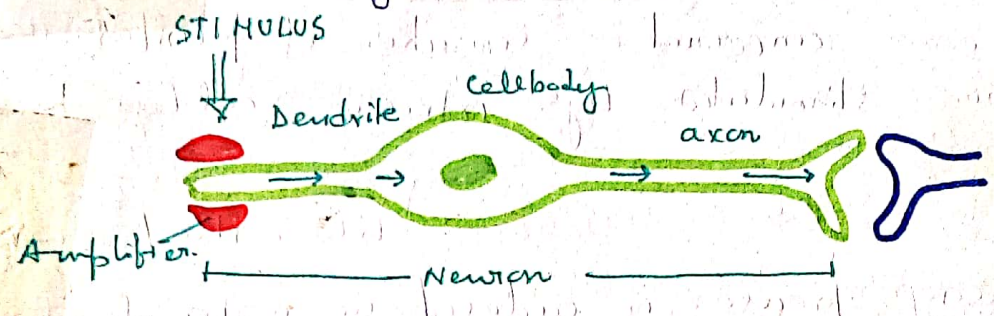 STIMULUS
Dendrite
Cellbody
axon
Amplifier.
Neuron